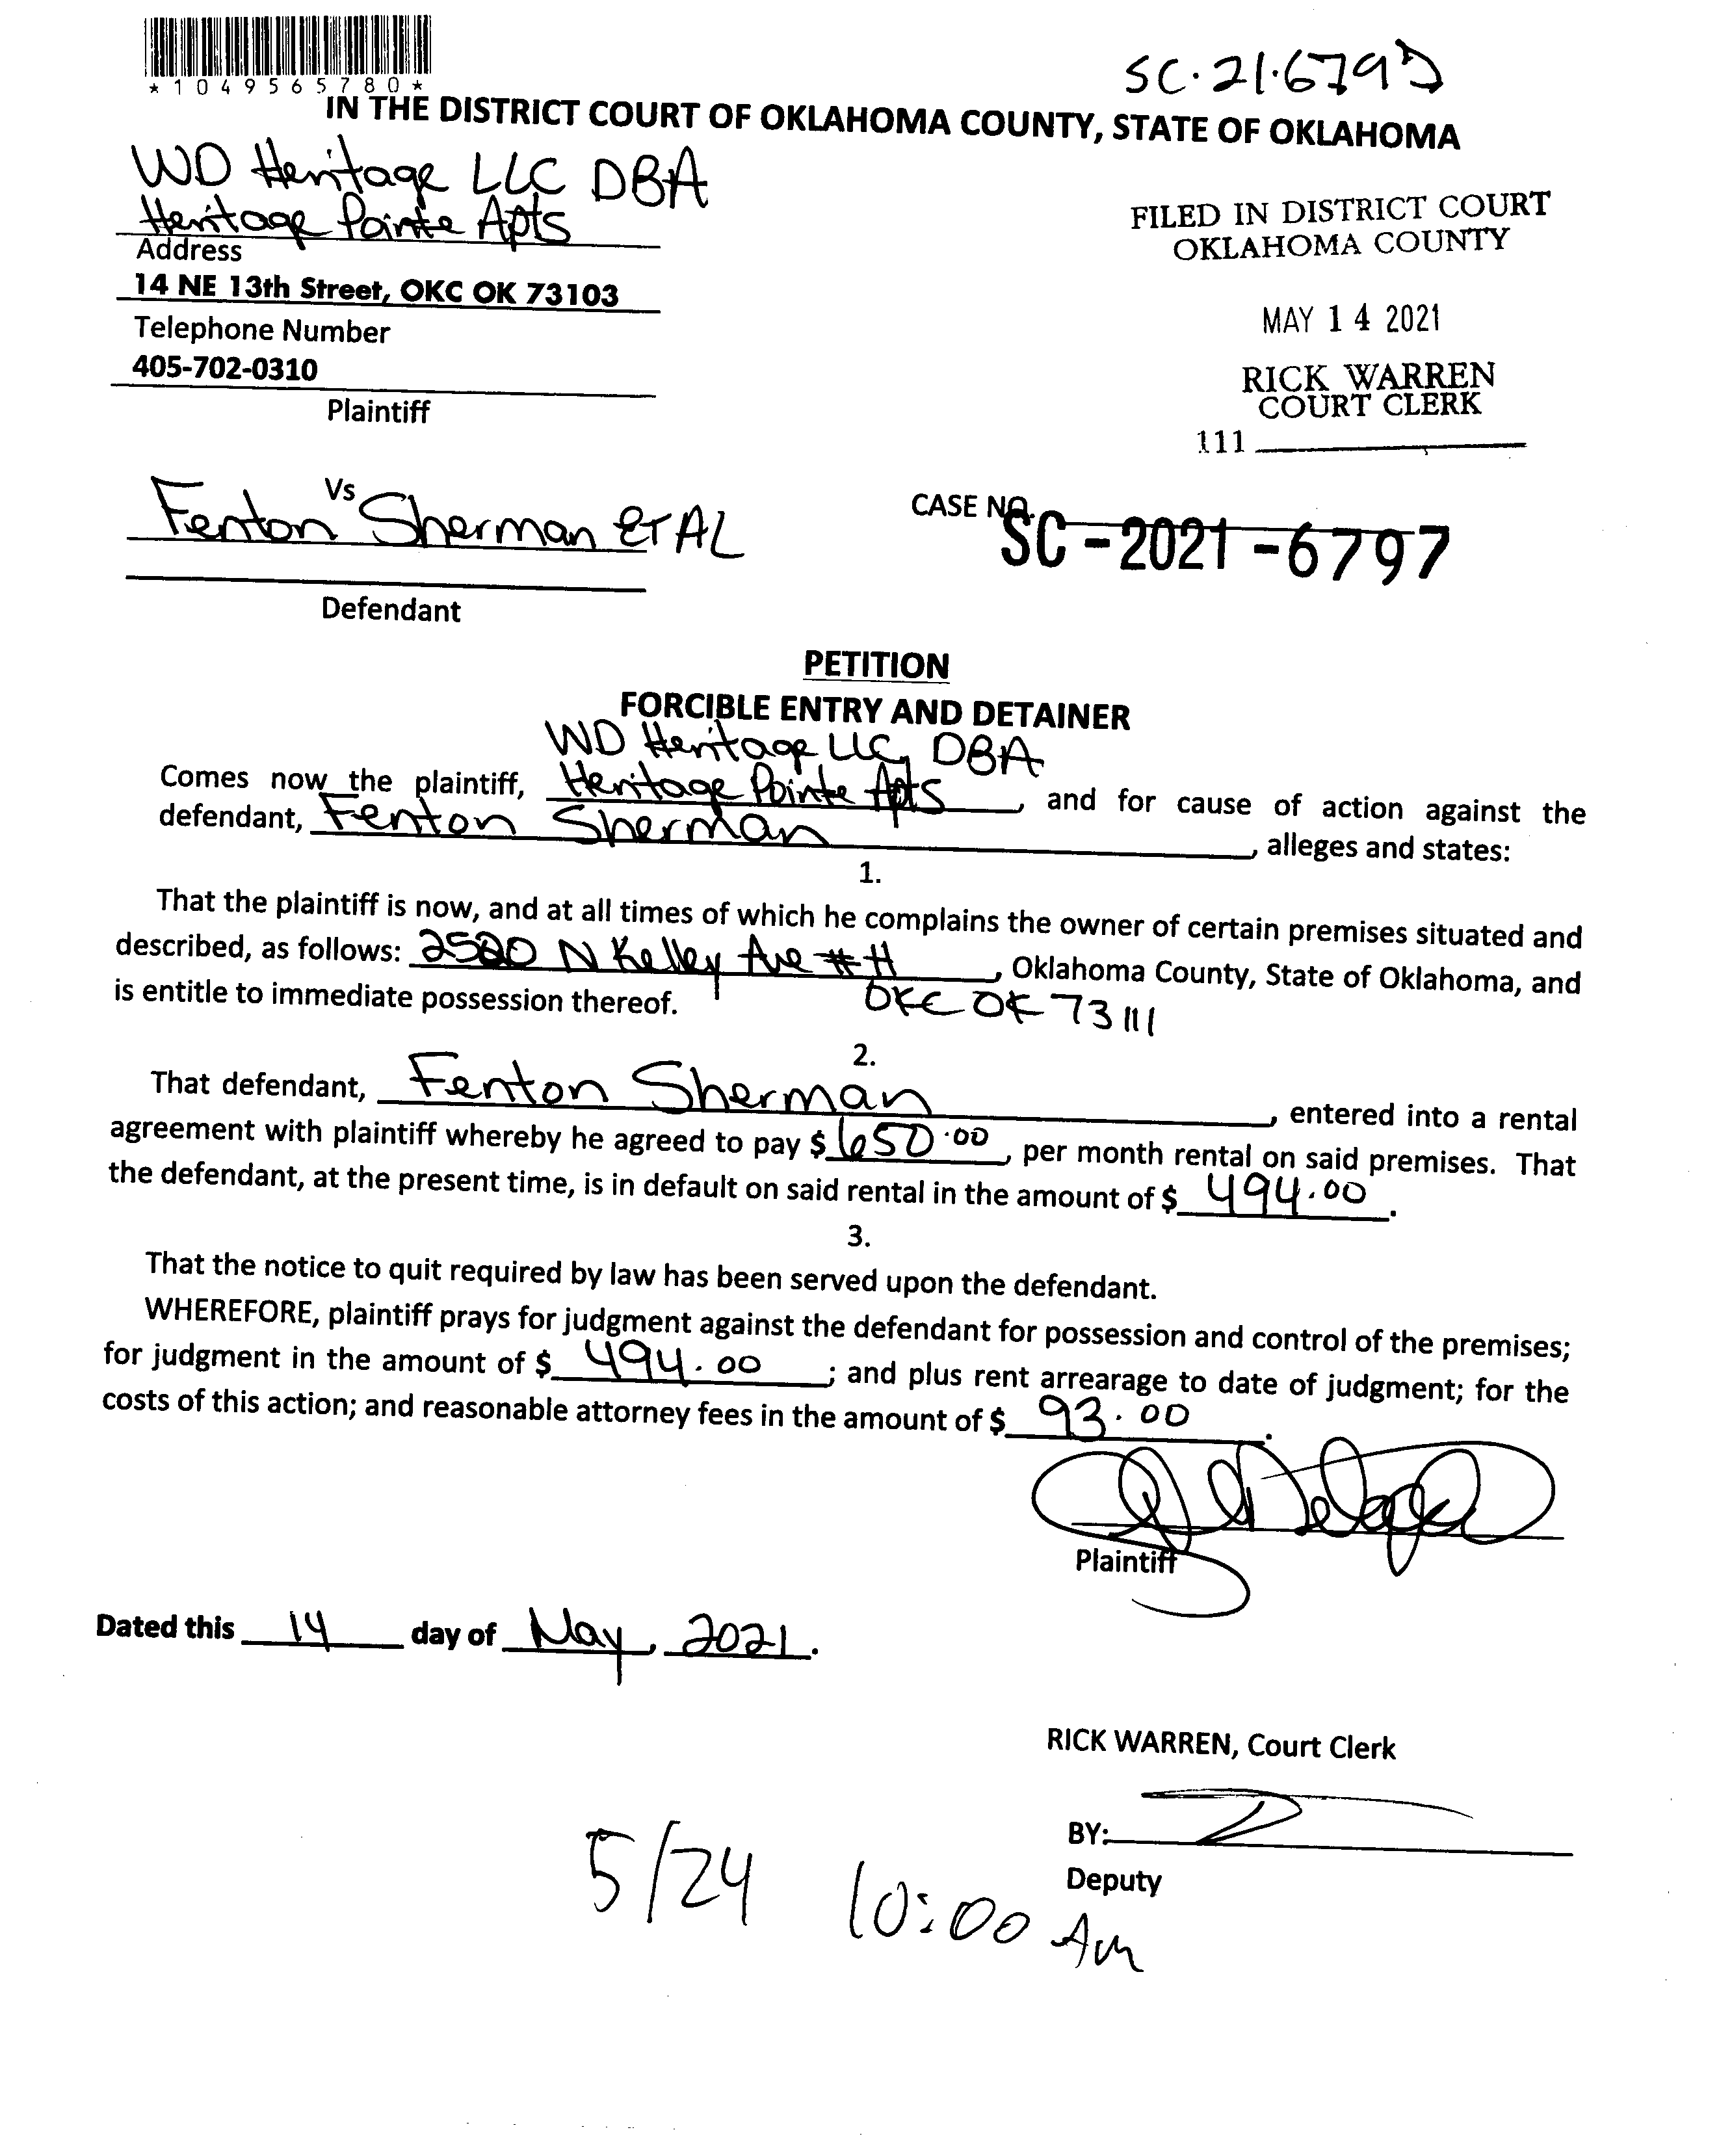 *1049565780*
SC.21.6797
IN THE DISTRICT COURT OF OKLAHOMA COUNTY, STATE OF OKLAHOMA
WD Heritage LLC DBA
Heritage Pointe Apts
Address
14 NE 13th Street, OKC OK 73103
Telephone Number
405-702-0310
Plaintiff
FILED IN DISTRICT COURT
OKLAHOMA COUNTY
MAY 14 2021
RICK WARREN
COURT CLERK
111
Vs
Fenton Sherman ET AL
Defendant
CASE NO.
SC-2021-6797
PETITION
FORCIBLE ENTRY AND DETAINER
WD Heritage LLC, DBA
Comes now the plaintiff, Heritage Pointe Apts, and for cause of action against the
defendant, Fenton Sherman, alleges and states:
1.
That the plaintiff is now, and at all times of which he complains the owner of certain premises situated and
described, as follows: 2520 N Kelley Ave # H, Oklahoma County, State of Oklahoma, and
is entitle to immediate possession thereof. OKC OK 73111
2.
That defendant, Fenton Sherman, entered into a rental
agreement with plaintiff whereby he agreed to pay $ 650.00, per month rental on said premises. That
the defendant, at the present time, is in default on said rental in the amount of $ 494.00.
3.
That the notice to quit required by law has been served upon the defendant.
WHEREFORE, plaintiff prays for judgment against the defendant for possession and control of the premises;
for judgment in the amount of $ 494.00; and plus rent arrearage to date of judgment; for the
costs of this action; and reasonable attorney fees in the amount of $ 93.00.
Plaintiff
Dated this 14 day of May, 2021.
RICK WARREN, Court Clerk
BY:
Deputy
5/24 10:00 Am